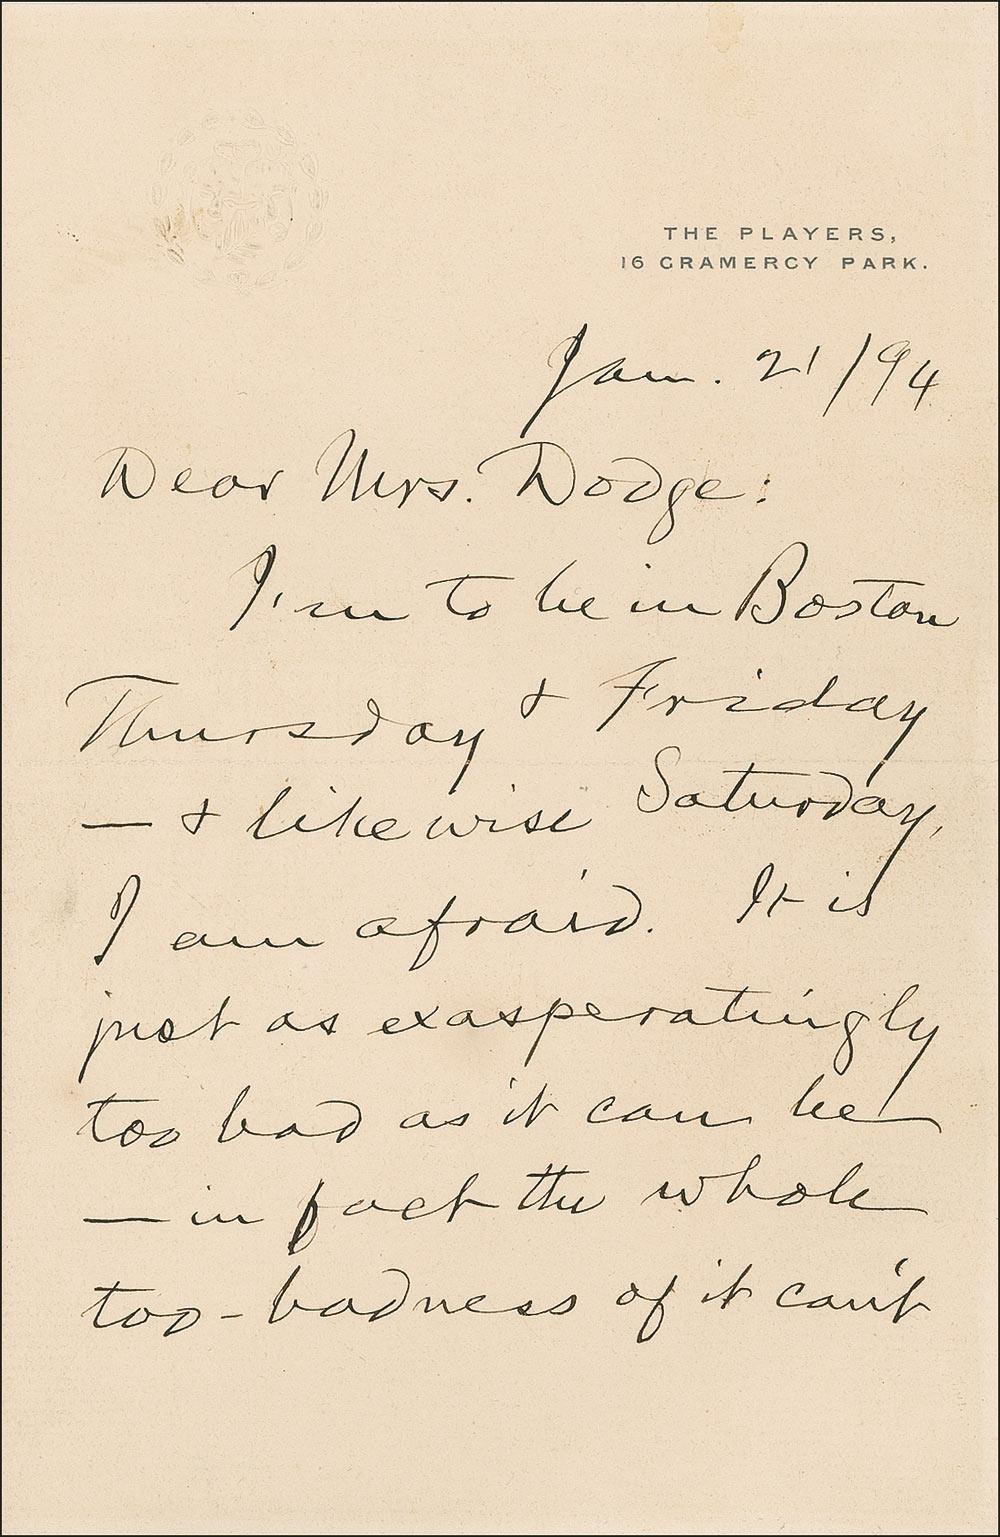 THE PLAYERS,
16 GRAMERCY PARK.
Jan. 21/94
Dear Mrs. Dodge:
I'm to be in Boston
Thursday & Friday
— & likewise Saturday,
I am afraid. It is
just as exasperatingly
too bad as it can be
— in fact the whole
too-badness of it can't